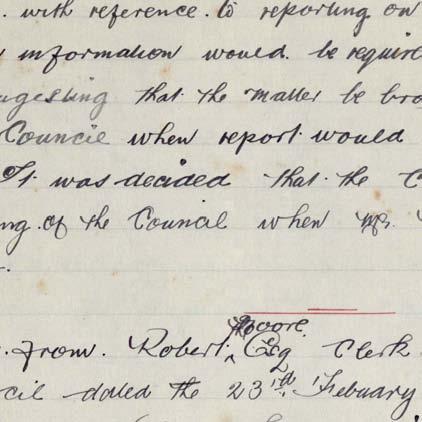 . with reference. to reporting on
information would. be require
uggesting that the matter be bro
Council when report would
It was decided that the C
ng. of the Council when Mr.
. from. Robert. Moore. Esq Clerk
cil dated the 23rd. February